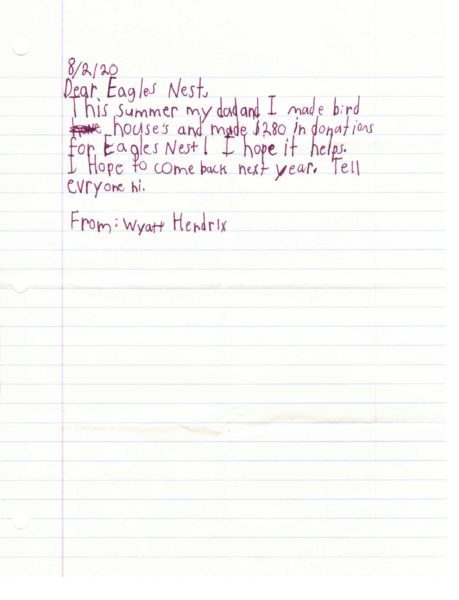 8/2/20
Dear Eagles Nest,
This summer my dad and I made bird
house's and made $280 in donations
for Eagles Nest! I hope it helps.
I Hope to come back next year. Tell
evryone hi.
From: Wyatt Hendrix